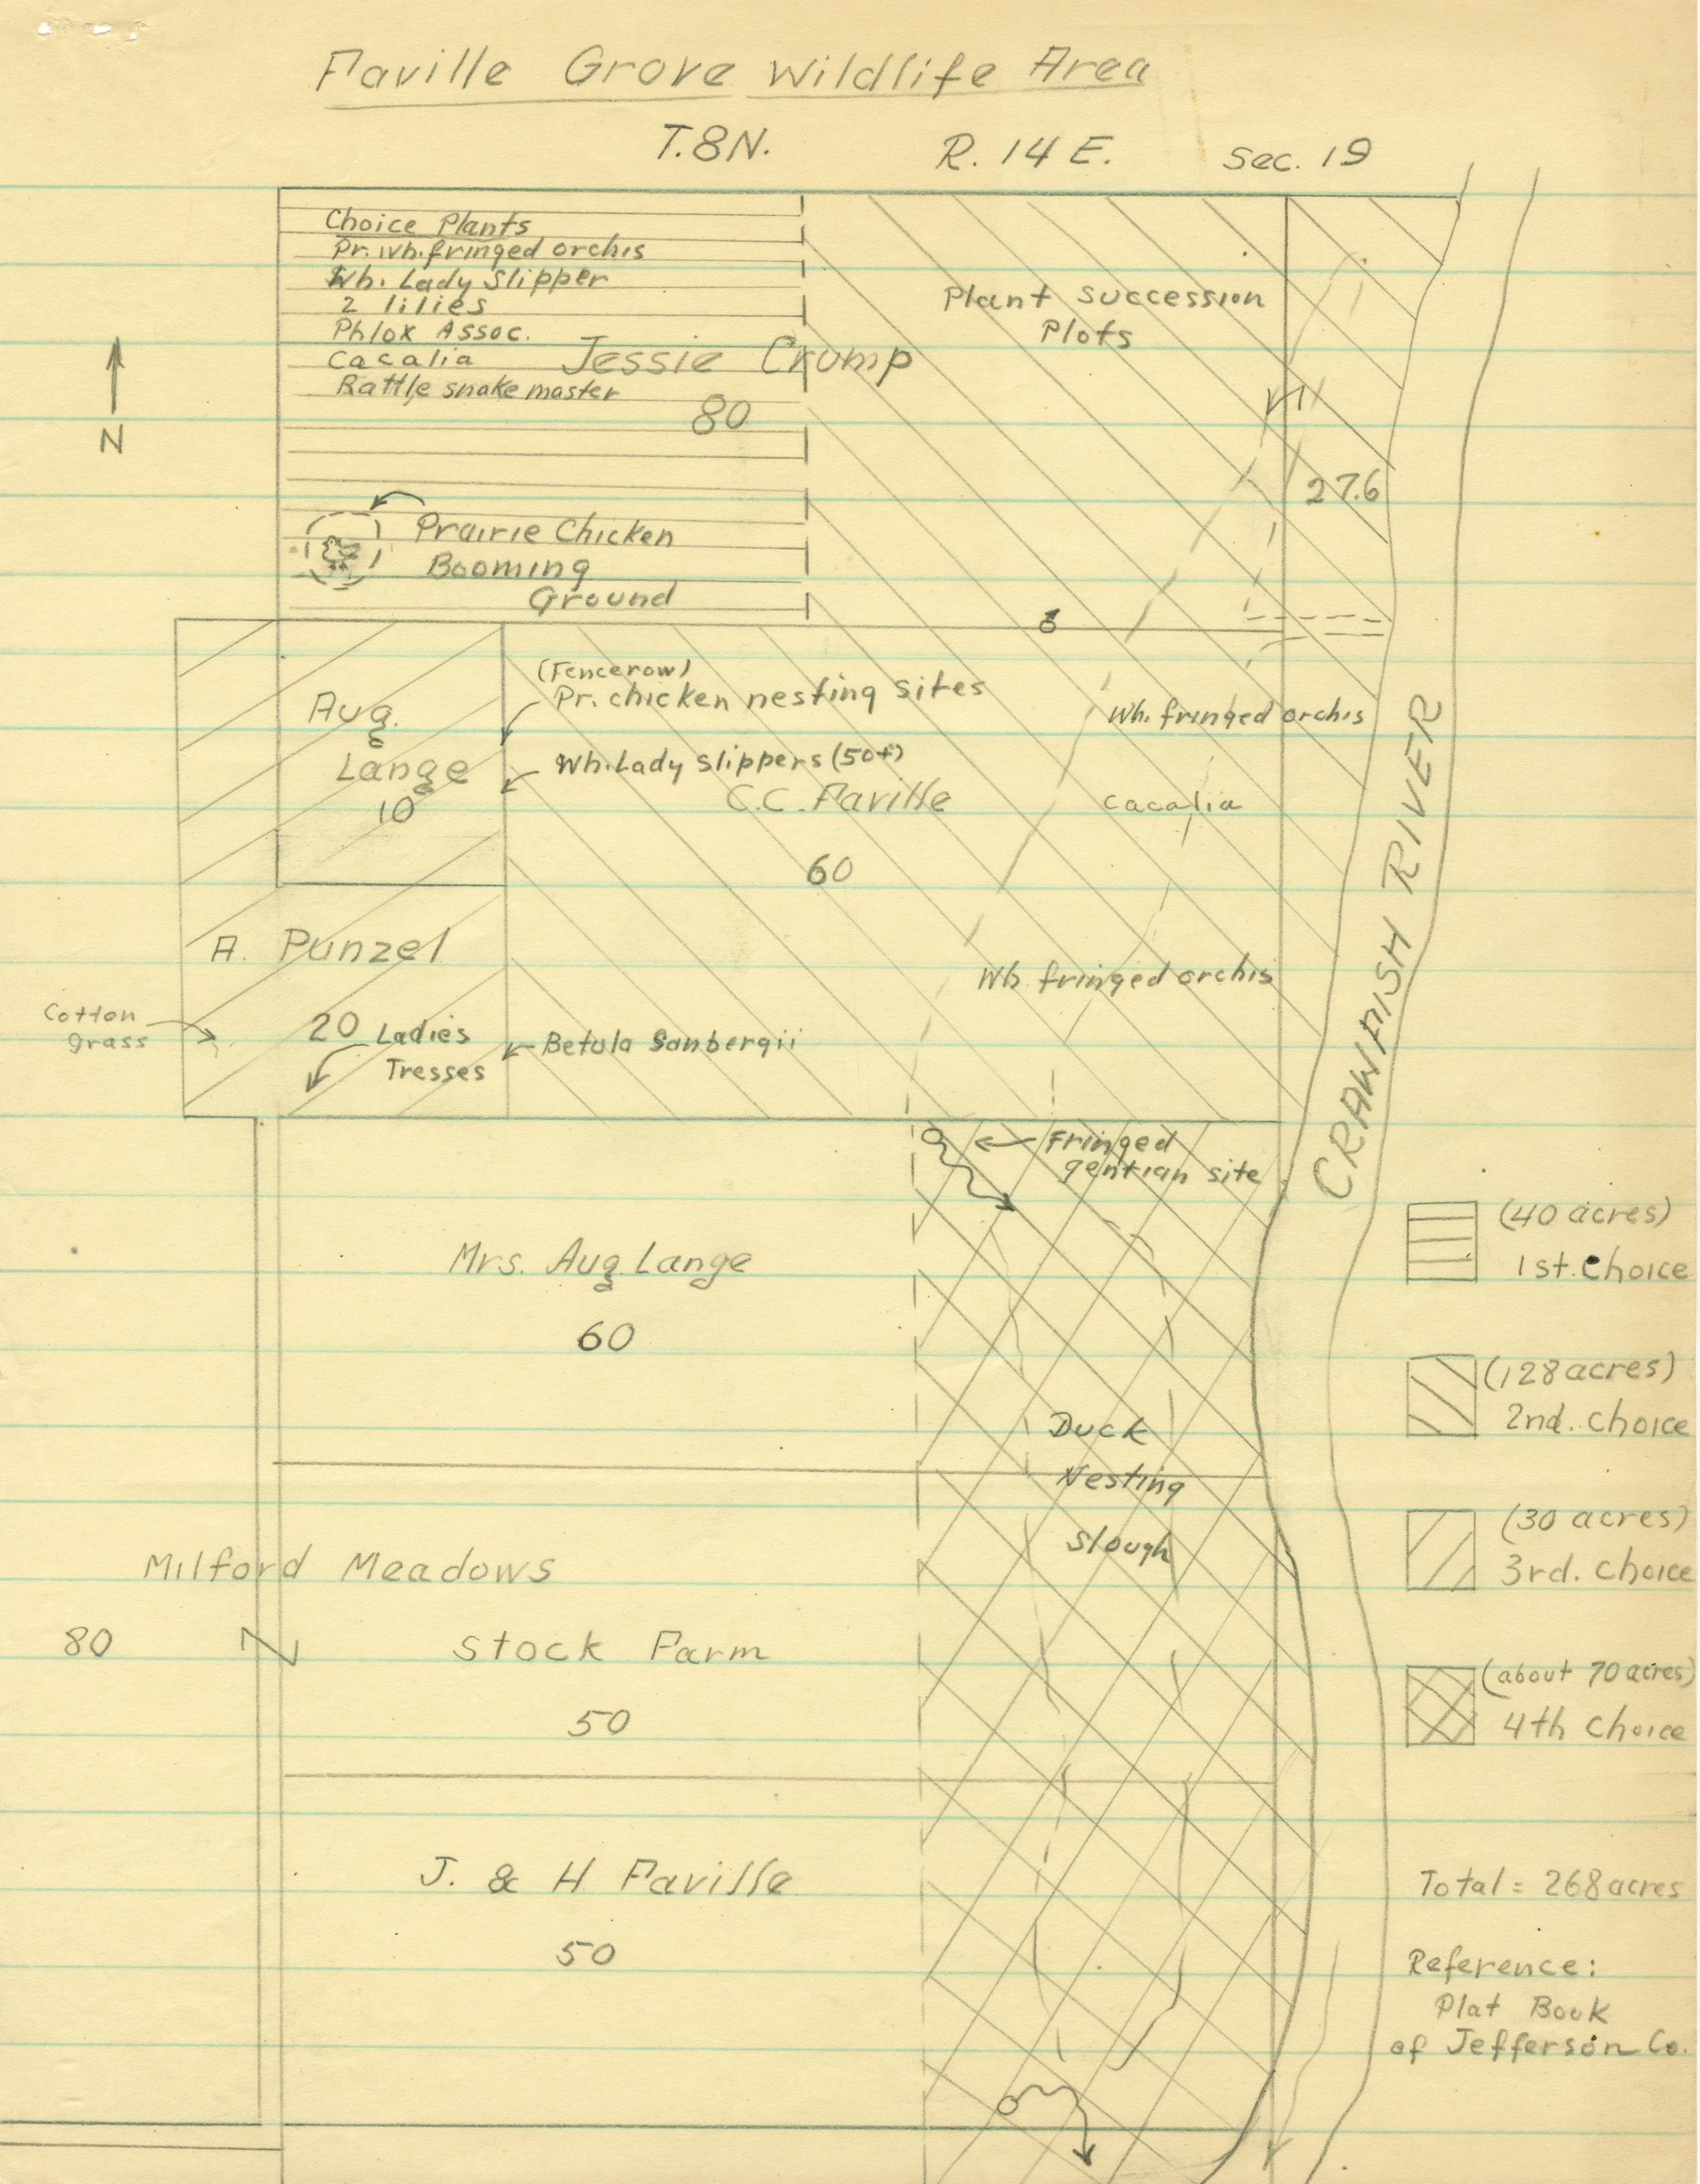 Faville Grove Wildlife Area
T.8N. R. 14 E. Sec. 19
Choice Plants
Pr. Wh. fringed orchis
Wh. Lady Slipper
2 lilies
Phlox Assoc.
Cacalia
Rattle snake master
Jessie Crump
80
Plant Succession
Plots
N
27.6
Prairie Chicken
Booming
Ground
8
(Fencerow)
Pr. chicken nesting sites
Aug.
Lange
10
Wh. Lady Slippers (50+)
C.C. Faville
60
Wh. fringed orchis
Cacalia
CRAWFISH RIVER
A. Punzel
20
Wh. fringed orchis
Cotton
grass
Ladies
Tresses
Betula Sanbergii
Fringed
gentian site
Mrs. Aug. Lange
60
(40 acres)
1st. Choice
(128 acres)
2nd. Choice
Duck
Nesting
Slough
(30 acres)
3rd. Choice
Milford Meadows
80
Stock Farm
50
(about 70 acres)
4th Choice
J. & H Faville
50
Total = 268 acres
Reference:
Plat Book
of Jefferson Co.